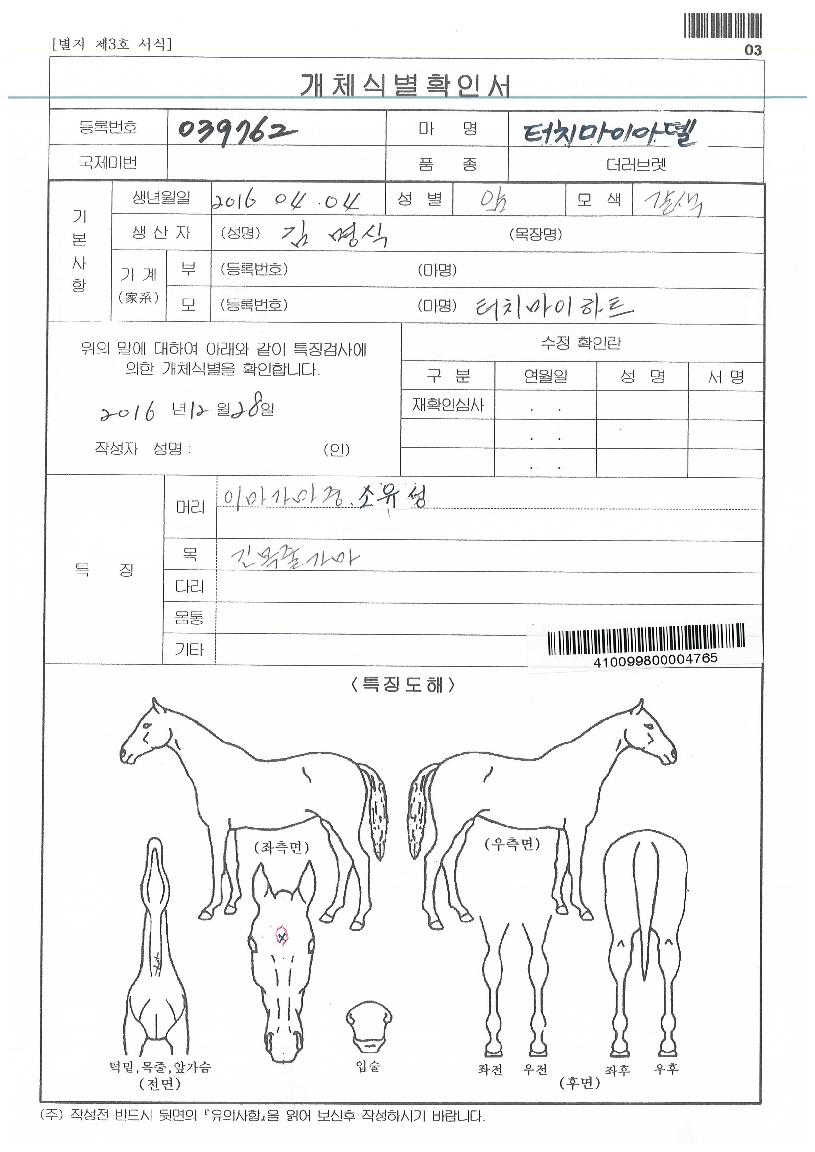 [별지 제3호 서식]
03
개체식별확인서
등록번호 039762 마 명 터치마이아델
국제마번 품 종 더러브렛
기본사항
생년월일 2016 04 . 04 성 별 암 모 색 갈색
생 산 자 (성명) 김 명식 (목장명)
기 계 (家系)
부 (등록번호) (마명)
모 (등록번호) (마명) 터치마이하트
위의 말에 대하여 아래와 같이 특징검사에
의한 개체식별을 확인합니다.
2016 년 12 월 28 일
작성자 성명 : (인)
수정 확인란
구 분 연월일 성 명 서 명
재확인심사 . .
. .
. .
특 징
머리 이마가마중. 소유성
목 긴목줄가마
다리
몸통
기타
410099800004765
<특징도해>
(좌측면) (우측면)
턱밑,목줄,앞가슴
(전면)
입술
좌전 우전 좌후 우후
(후면)
(주) 작성전 반드시 뒷면의 『유의사항』을 읽어 보신후 작성하시기 바랍니다.